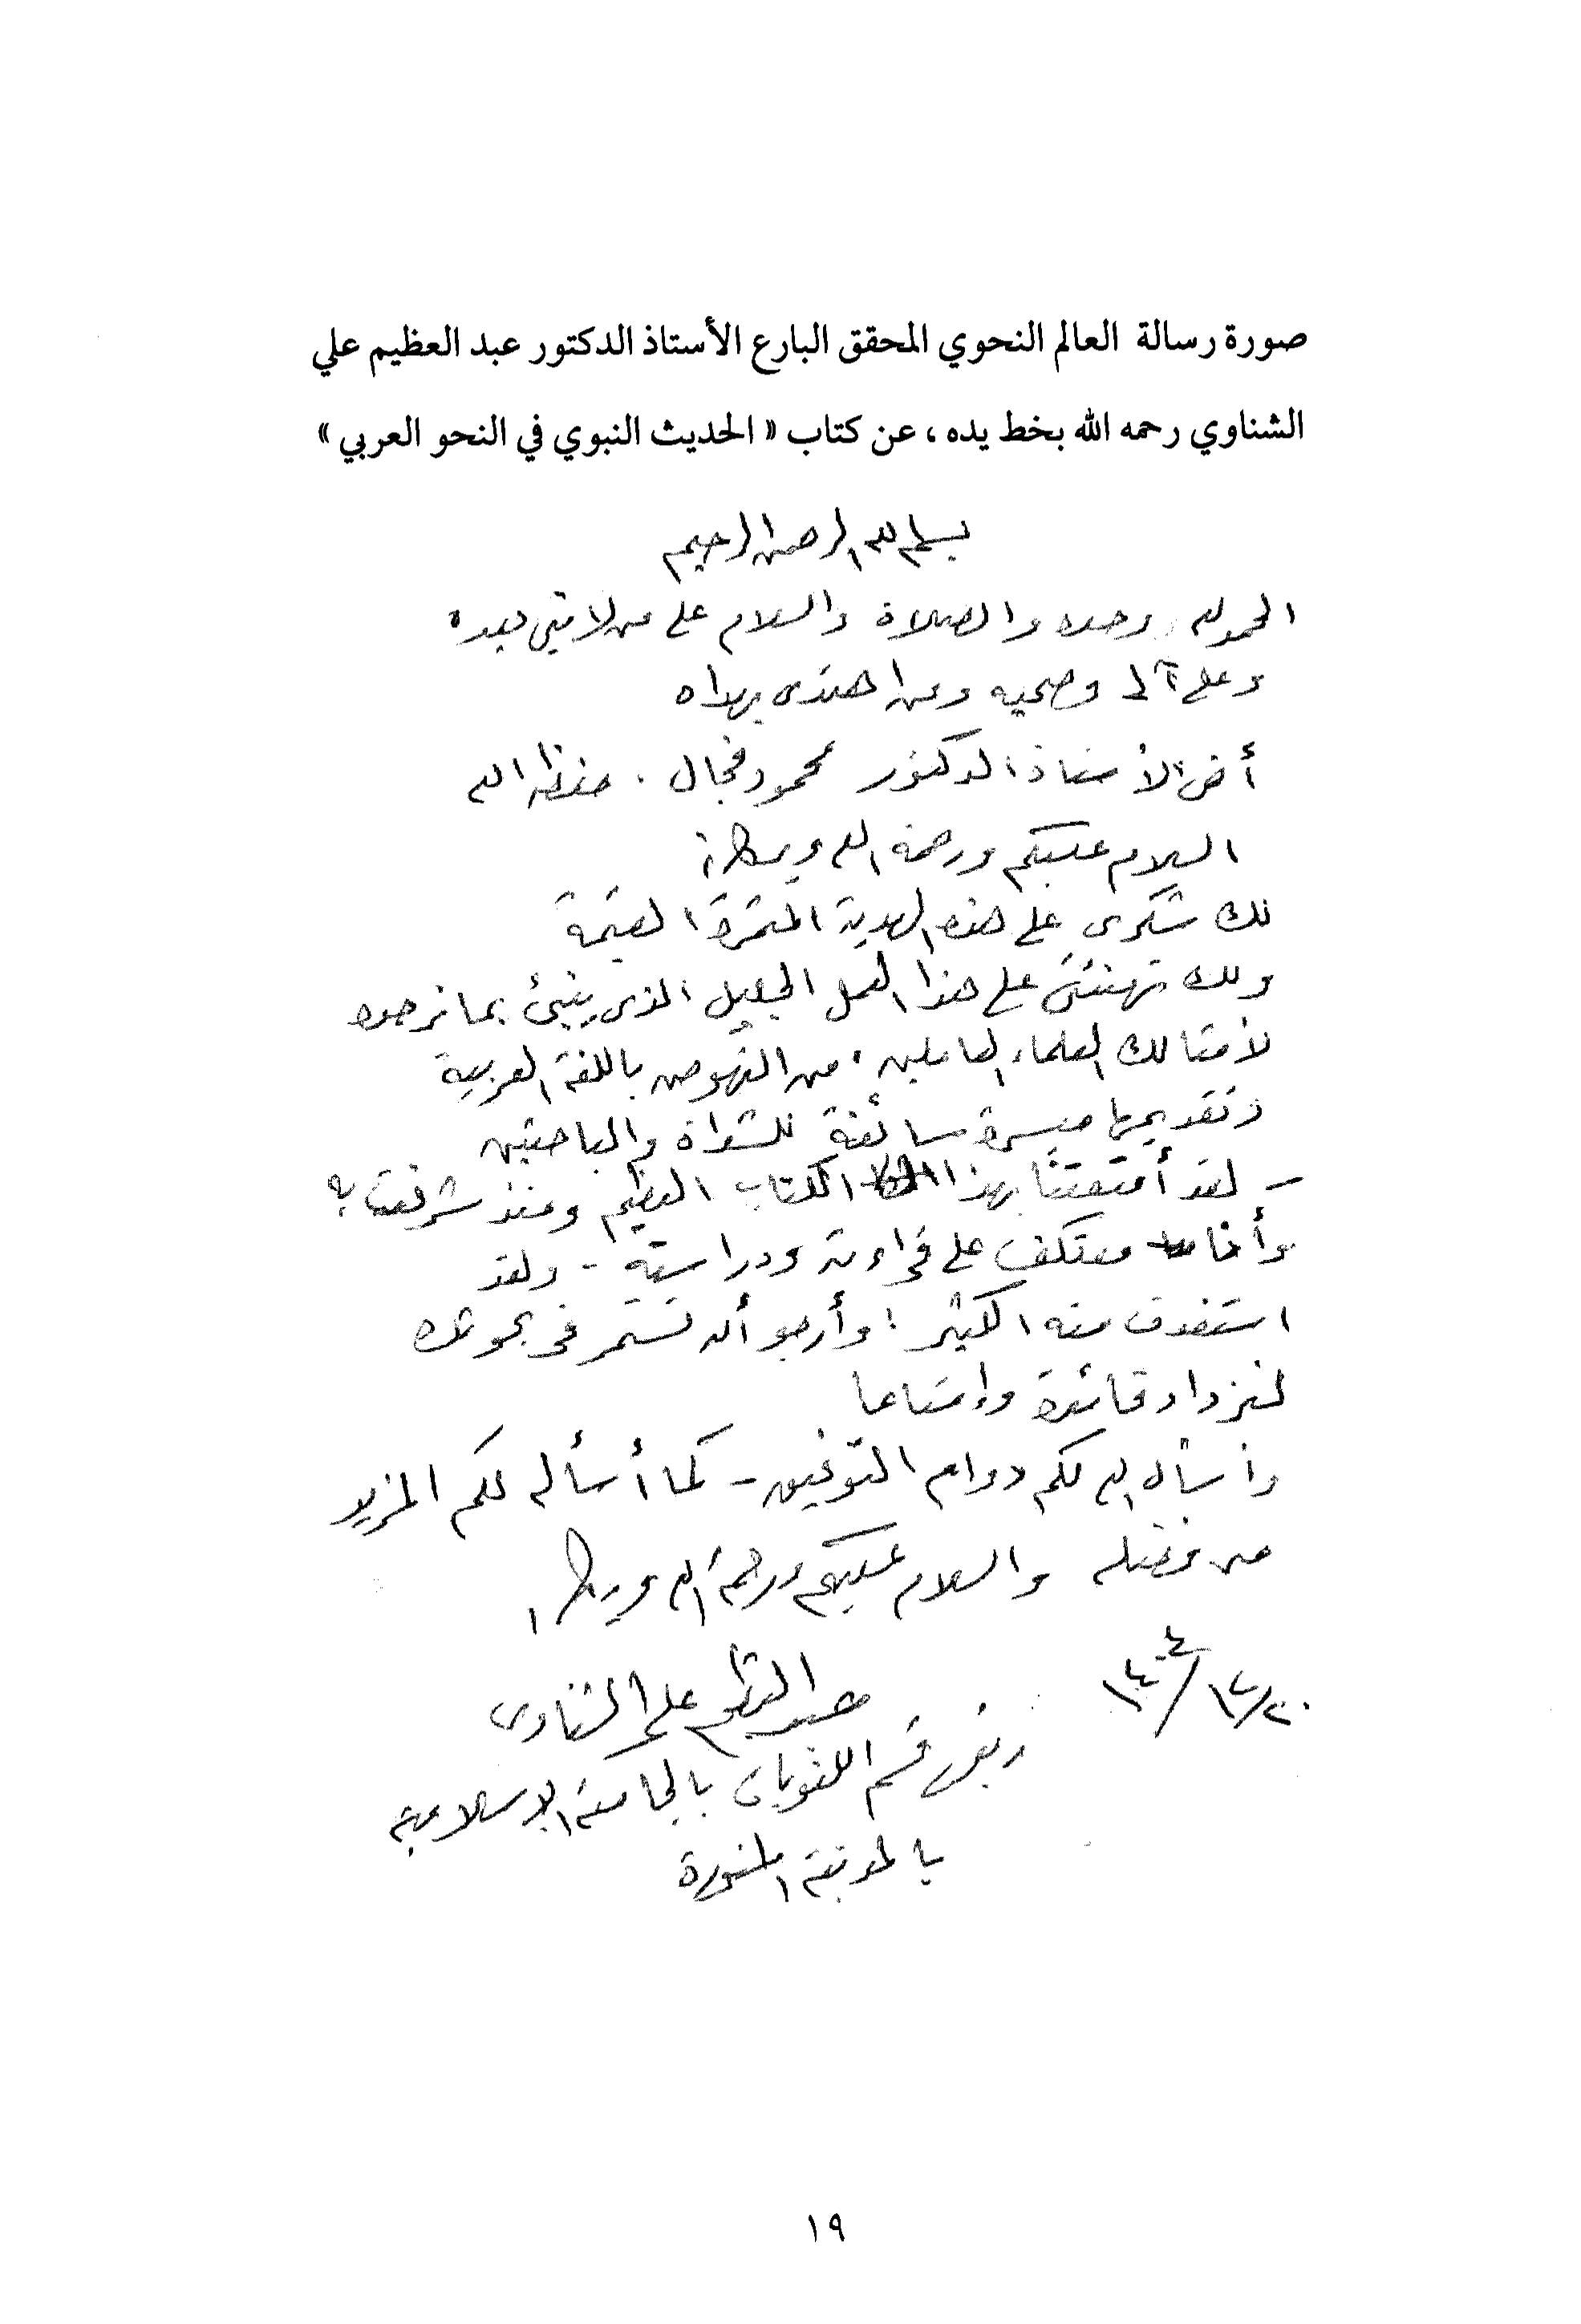 صورة رسالة العالم النحوي المحقق البارع الأستاذ الدكتور عبد العظيم علي
الشناوي رحمه الله بخط يده ، عن كتاب « الحديث النبوي في النحو العربي »
بسم الله الرحمن الرحيم
الحمد لله وحده والصلاة والسلام على من لا نبي بعده
وعلى آله وصحبه ومن اهتدى بهداه
أخى الأستاذ الدكتور محمود فجال . حفظه الله
السلام عليكم ورحمة الله وبركاته
لك شكرى على هذه الهدية المثمرة القيمة
ولك تهنئتى على هذا العمل الجليل الذى ينبئ بما نرجوه
لأمثالك العلماء العاملين ، من النهوض باللغة العربية
وتقديمها ميسرة سائغة للشداة والباحثين
- لقد أمتعتنا بهذا الكتاب العظيم ومنذ شرفت به
وأنا معتكف على قراءته ودراسته - ولقد
استفدت منه الكثير ؛ وأرجو أن تستمر فى بحوثك
لنزداد فائدة وإمتاعا
وأسأل الله لكم دوام التوفيق - كما أسأله لكم المزيد
من فضله والسلام عليكم ورحمة الله وبركاته
٢٠/١٢/١٤٠٤
عبد العظيم على الشناوى
رئيس قسم اللغويات بالجامعة الإسلامية
بالمدينة المنورة
١٩